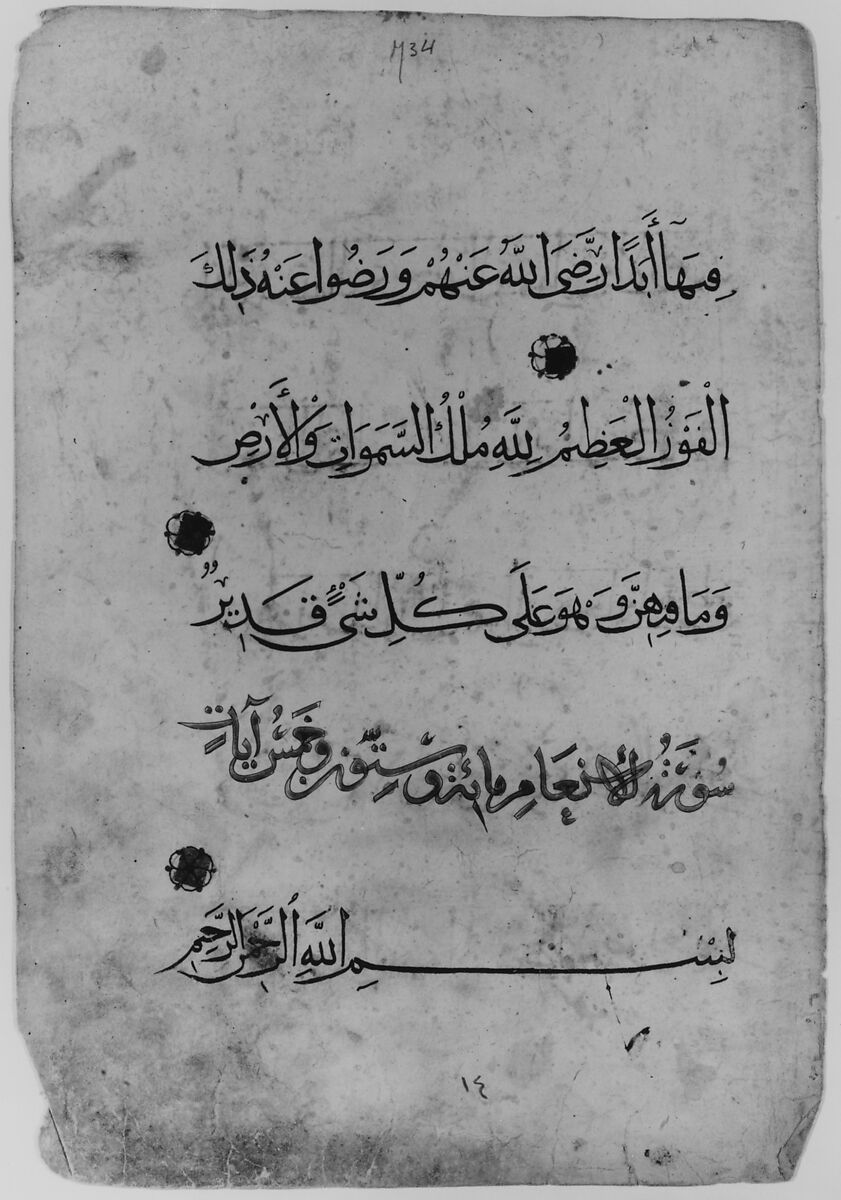 M34
فِيهَآ أَبَدًا رَّضِيَ اللَّهُ عَنْهُمْ وَرَضُوا عَنْهُ ذَٰلِكَ
الْفَوْزُ الْعَظِيمُ لِلَّهِ مُلْكُ السَّمَوَاتِ وَالْأَرْضِ
وَمَا فِيهِنَّ وَهُوَ عَلَى كُلِّ شَيْءٍ قَدِيرٌ
سُورَةُ الْأَنْعَامِ مِائَةٌ وَسِتُّونَ وَخَمْسُ آيَاتٍ
بِسْمِ اللَّهِ الرَّحْمَٰنِ الرَّحِيمِ
١٤